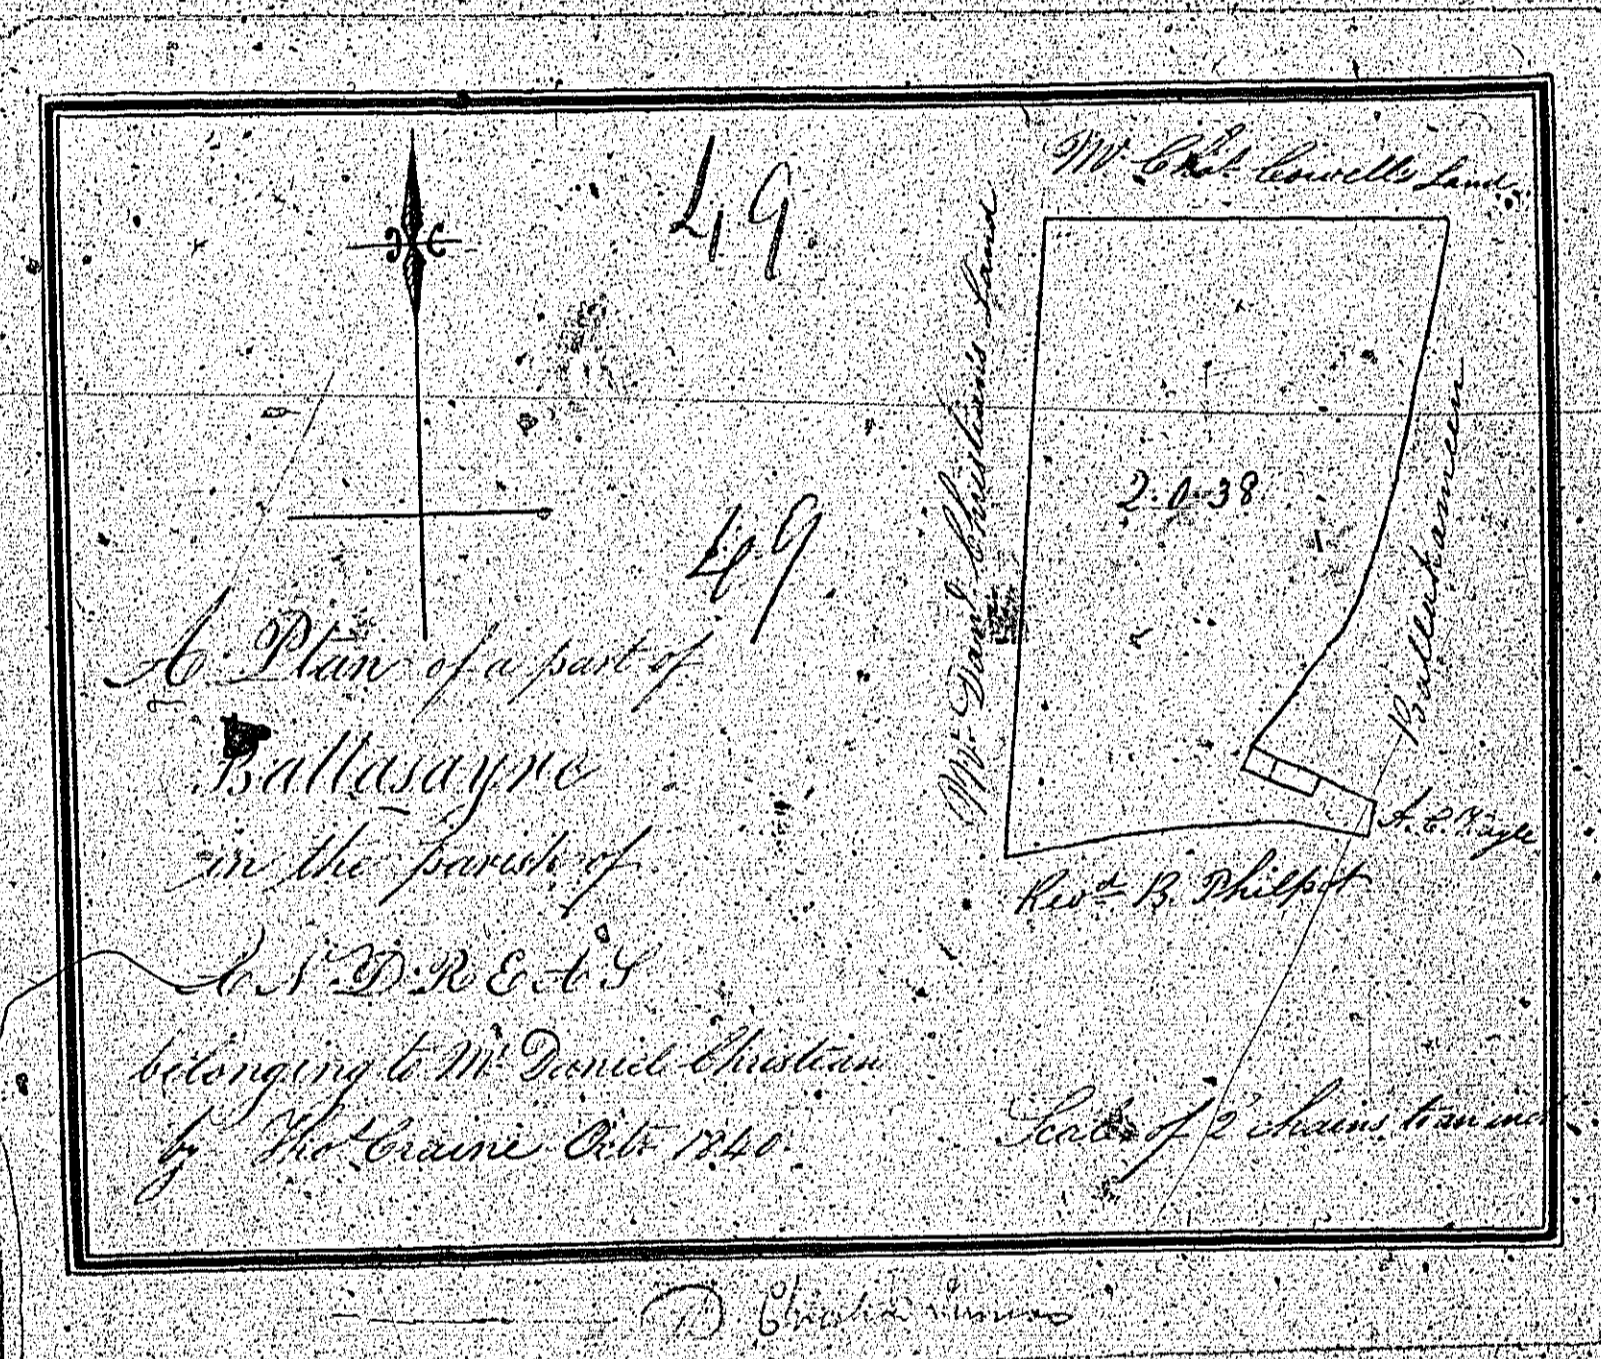 49
49
A Plan of a part of
Ballasayne
in the parish of
ANDREAS
belonging to Mr Daniel Christian
by Thos Craine Octr 1840
Mr Thos Cowell's Land
Mr Danl Christian's Land
2.0.38
A. C.
Revd B. Philpot
Scale of 2 chains to an inch
D. Christian